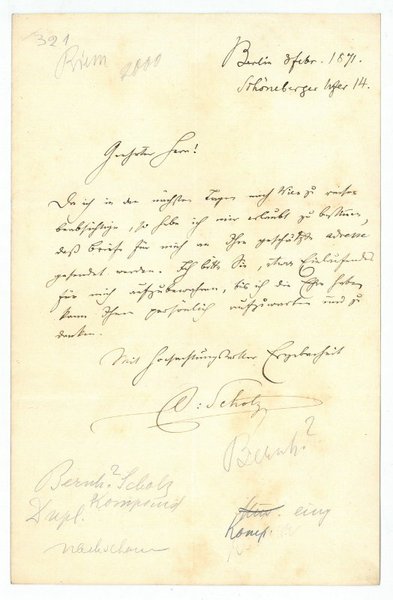 321
Riem 2000
Berlin 3 Febr. 1871.
Schöneberger Ufer 14.
Geehrter Herr!
Da ich in den nächsten Tagen nach
beabsichtige, so habe ich mir erlaubt zu bestimmen,
daß Briefe für mich an Ihre geschätzte Adresse
gesendet werden. Ich bitte Sie, etwa Einlaufendes
für mich aufzubewahren, bis ich die Ehre haben
kann Ihnen persönlich aufzuwarten und zu
danken.
Mit hochachtungsvoller Ergebenheit
B. Scholz
Bernh.?
Bernh.? Scholz
Komponist
Dupl.
nachschauen
eing
Komp.